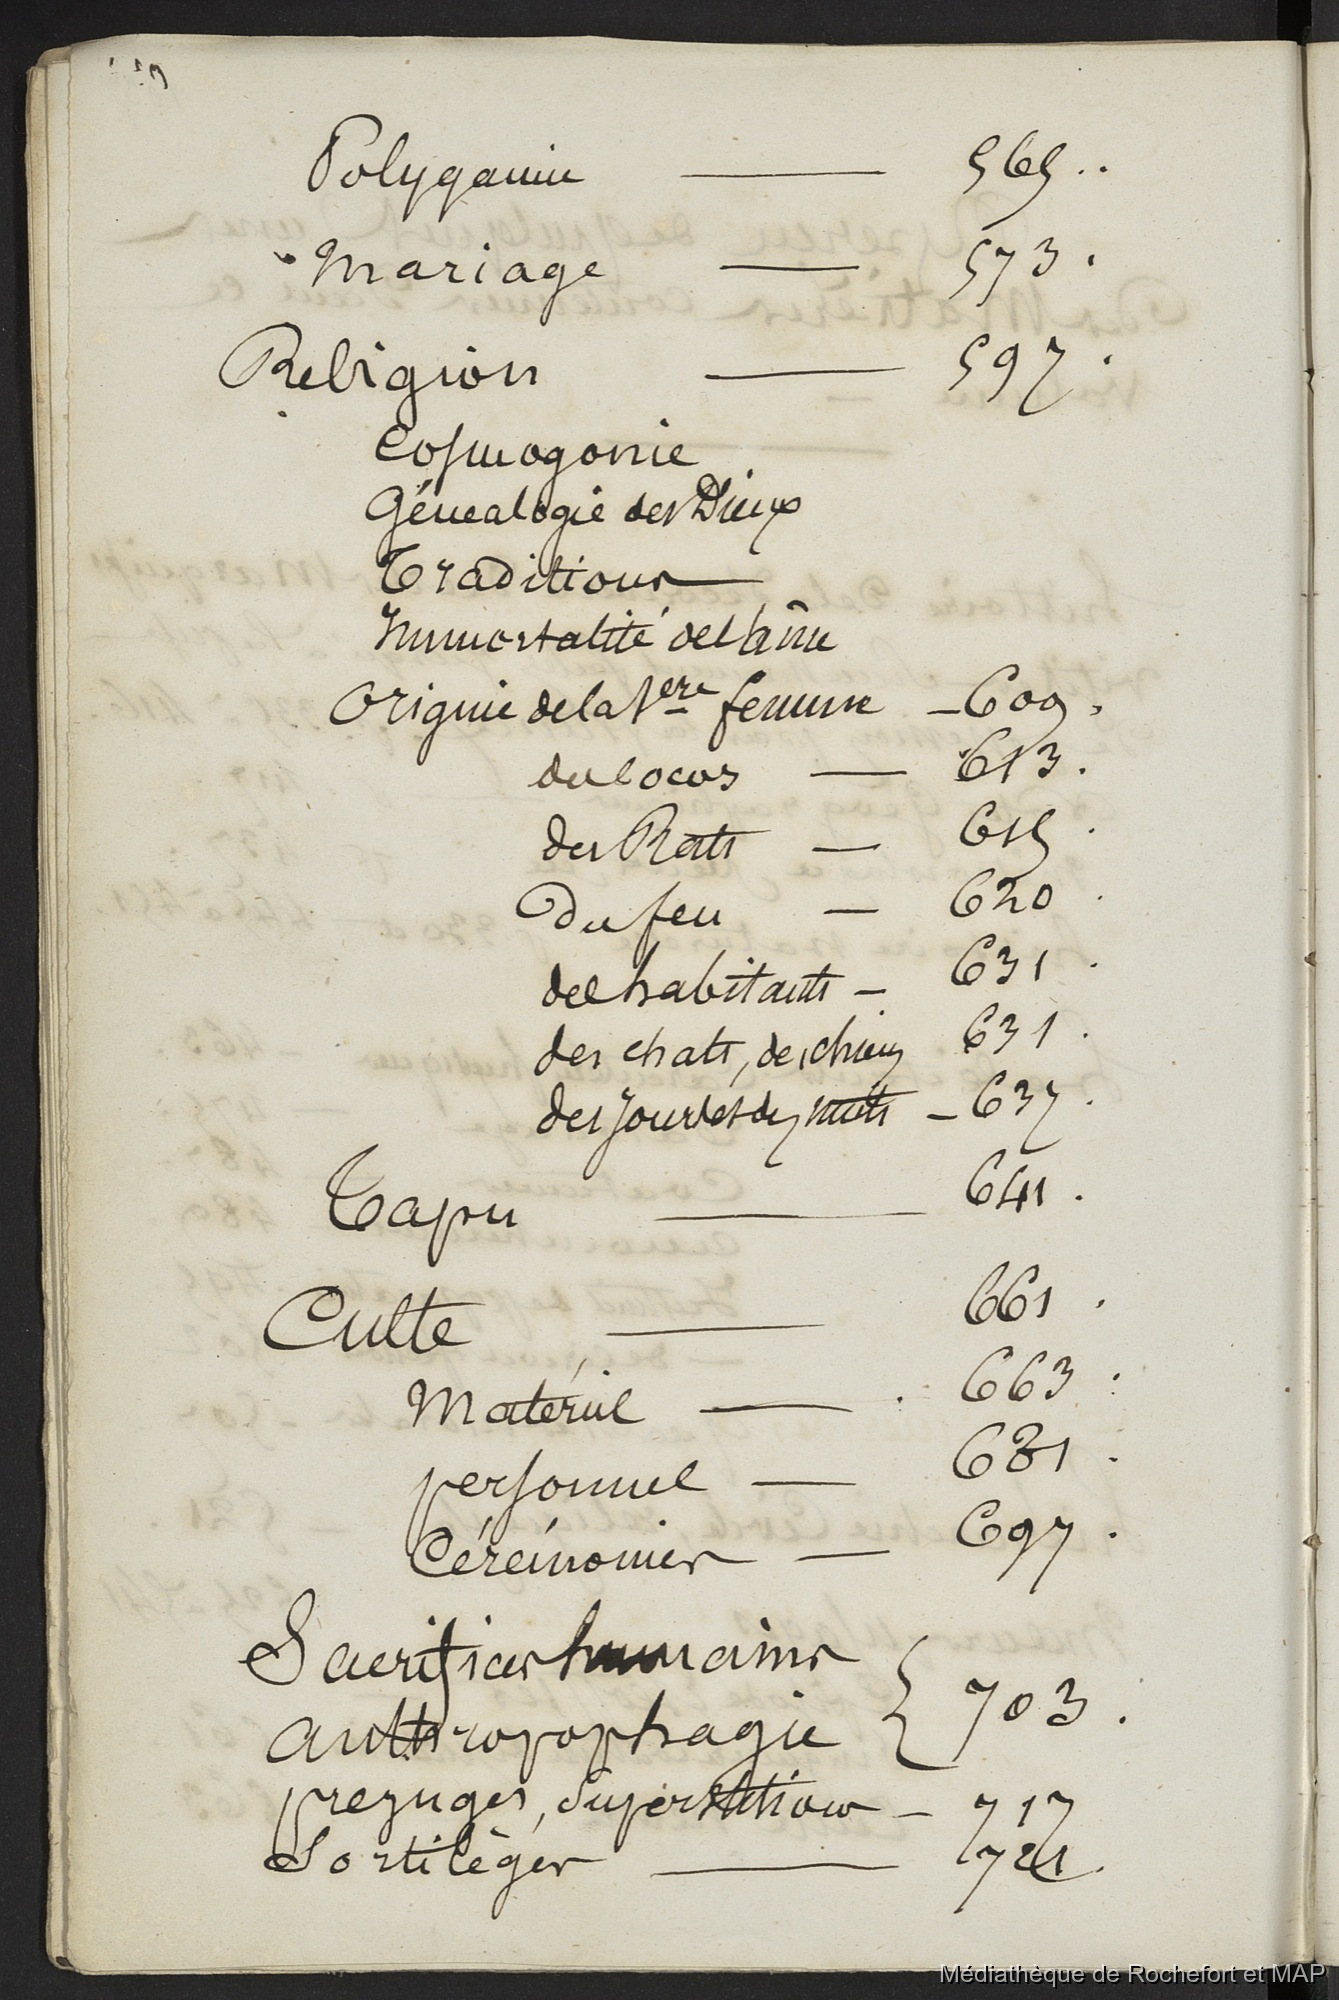 Polygamie — 565..
Mariage — 573.
Religion — 597.
Cosmogonie
Génealogie des Dieux
Traditions
Immortalité del'âme
Origine dela 1ere femme — 609.
du Cocos — 613.
des Rats — 615.
Du feu — 620.
des habitants — 631.
des chats, des chiens 631.
des Jours et des nuits — 637.
Tapu — 641.
Culte — 661.
Matériel — 663.
personnel — 681.
Cérémonies — 697.
Sacrifices humains
anthropophagie } 703.
prejuges, Superstitions — 717
Sortilèges — 721.
Médiathèque de Rochefort et MAP